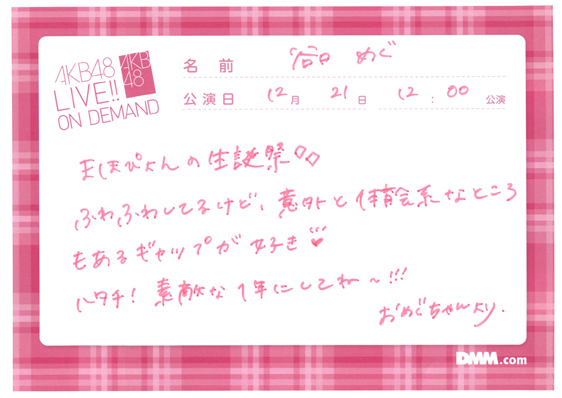 AKB48
LIVE!!
ON DEMAND
AKB
48
名前 谷口 めぐ
公演日 12月 21日 12:00 公演
まほぴょんの生誕祭♡♡
ふわふわしてるけど、意外と体育会系なところ
もあるギャップが好き♥
ハタチ! 素敵な1年にしてね〜!!!
おめぐちゃんより.
DMM.com